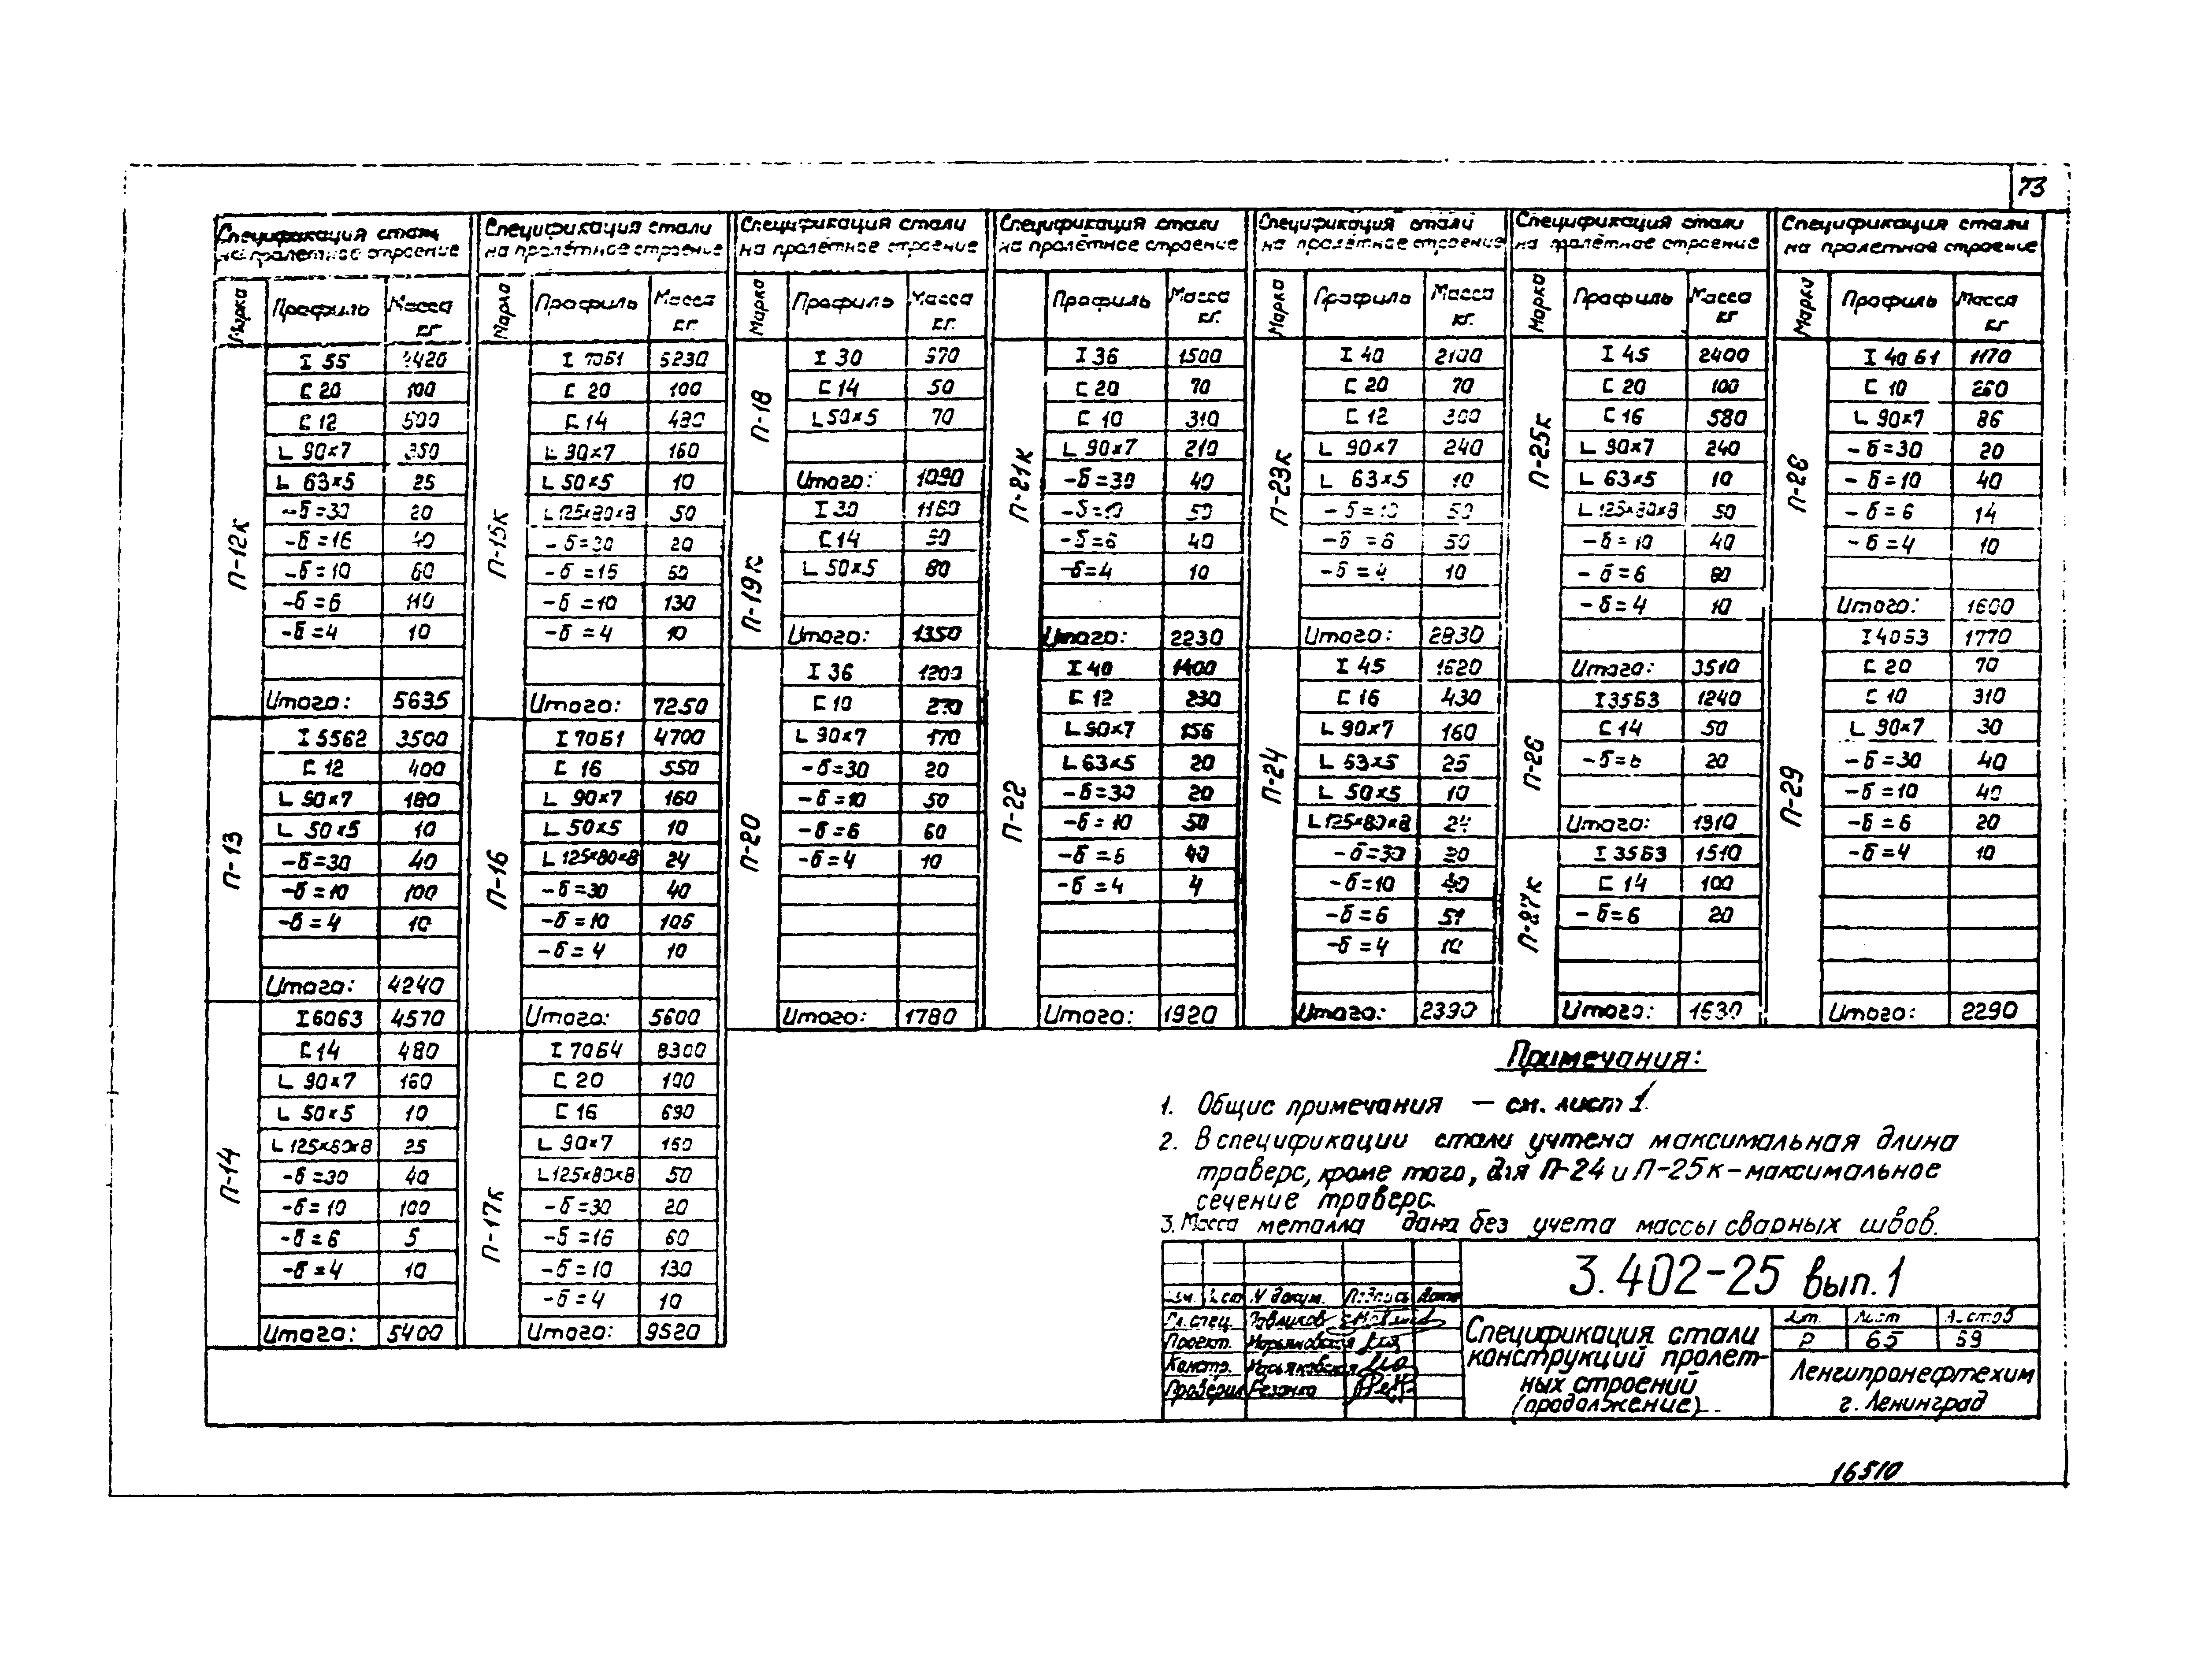 73
Спецификация стали
на пролётное строение
Марка Профиль Масса кг
П-12к
I 55 4420
[ 20 100
[ 12 500
L 90×7 350
L 63×5 25
-δ=30 20
-δ=16 40
-δ=10 60
-δ=6 110
-δ=4 10
Итого: 5635
П-13
I 55Б2 3500
[ 12 400
L 90×7 180
L 50×5 10
-δ=30 40
-δ=10 100
-δ=4 10
Итого: 4240
П-14
I 60Б3 4570
[ 14 480
L 90×7 160
L 50×5 10
L 125×80×8 25
-δ=30 40
-δ=10 100
-δ=6 5
-δ=4 10
Итого: 5400
Спецификация стали
на пролётное строение
Марка Профиль Масса кг.
П-15к
I 70Б1 6230
[ 20 100
[ 14 480
L 90×7 160
L 50×5 10
L 125×80×8 50
-δ=30 20
-δ=16 60
-δ=10 130
-δ=4 10
Итого: 7250
П-16
I 70Б1 4700
[ 16 550
L 90×7 160
L 50×5 10
L 125×80×8 24
-δ=30 40
-δ=10 106
-δ=4 10
Итого: 5600
П-17к
I 70Б4 8300
[ 20 100
[ 16 690
L 90×7 160
L 125×80×8 50
-δ=30 20
-δ=16 60
-δ=10 130
-δ=4 10
Итого: 9520
Спецификация стали
на пролётное строение
Марка Профиль Масса кг.
П-18
I 30 970
[ 14 50
L 50×5 70
Итого: 1090
П-19к
I 30 1180
[ 14 90
L 50×5 80
Итого: 1350
П-20
I 36 1200
[ 10 270
L 90×7 170
-δ=30 20
-δ=10 50
-δ=6 60
-δ=4 10
Итого: 1780
Спецификация стали
на пролётное строение
Профиль Масса кг.
П-21к
I 36 1500
[ 20 70
[ 10 310
L 90×7 210
-δ=30 40
-δ=10 50
-δ=6 40
-δ=4 10
Итого: 2230
П-22
I 40 1400
[ 12 230
L 90×7 156
L 63×5 20
-δ=30 20
-δ=10 50
-δ=6 40
-δ=4 4
Итого: 1920
Спецификация стали
на пролётное строение
Марка Профиль Масса кг.
П-23к
I 40 2100
[ 20 70
[ 12 300
L 90×7 240
L 63×5 10
-δ=10 50
-δ=6 50
-δ=4 10
Итого: 2830
П-24
I 45 1620
[ 16 430
L 90×7 160
L 63×5 25
L 50×5 10
L 125×80×8 24
-δ=30 20
-δ=10 40
-δ=6 51
-δ=4 10
Итого: 2390
Спецификация стали
на пролётное строение
Марка Профиль Масса кг
П-25к
I 45 2400
[ 20 100
[ 16 580
L 90×7 240
L 63×5 10
L 125×80×8 50
-δ=10 40
-δ=6 80
-δ=4 10
Итого: 3510
П-26
I 35Б3 1240
[ 14 50
-δ=6 20
Итого: 1310
П-27к
I 35Б3 1510
[ 14 100
-δ=6 20
Итого: 1630
Спецификация стали
на пролетное строение
Марка Профиль Масса кг
I 40Б1 1170
[ 10 260
L 90×7 86
-δ=30 20
-δ=10 40
-δ=6 14
-δ=4 10
Итого: 1600
П-29
I 40Б3 1770
[ 20 70
[ 10 310
L 90×7 30
-δ=30 40
-δ=10 40
-δ=6 20
-δ=4 10
Итого: 2290
Примечания:
1. Общие примечания — см. лист 1.
2. В спецификации стали учтена максимальная длина
траверс, кроме того, для П-24 и П-25к - максимальное
сечение траверс.
3. Масса металла дана без учета массы сварных швов.
3.402-25 вып.1
Изм. Лист N докум. Подпись Дата
Гл. спец. Павликов
Проект. Марьяновская
Констр. Марьяновская
Проверил
Спецификация стали
конструкций пролет-
ных строений
(продолжение)
Лит. Лист Листов
Р 65 69
Ленгипронефтехим
г. Ленинград
16510